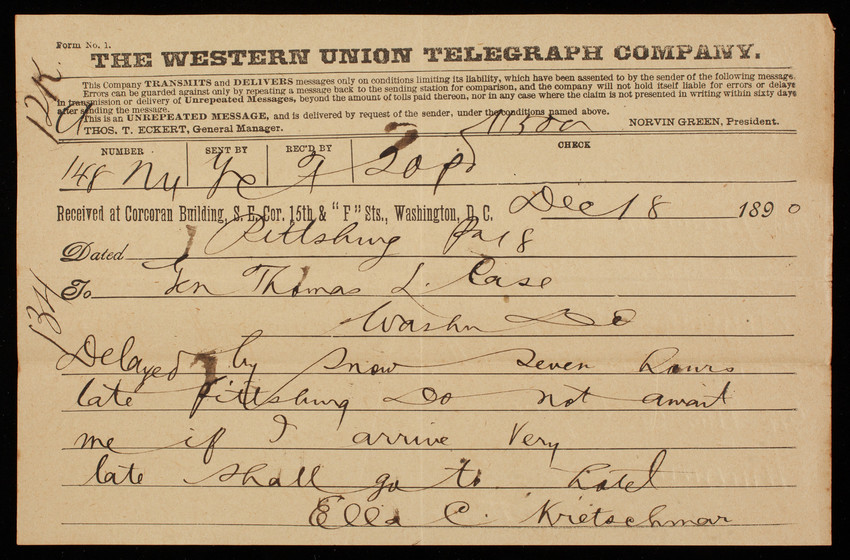 Form No. 1.
THE WESTERN UNION TELEGRAPH COMPANY.
This Company TRANSMITS and DELIVERS messages only on conditions limiting its liability, which have been assented to by the sender of the following message.
Errors can be guarded against only by repeating a message back to the sending station for comparison, and the company will not hold itself liable for errors or delays
in transmission or delivery of Unrepeated Messages, beyond the amount of tolls paid thereon, nor in any case where the claim is not presented in writing within sixty days
after sending the message.
This is an UNREPEATED MESSAGE, and is delivered by request of the sender, under the conditions named above.
THOS. T. ECKERT, General Manager. NORVIN GREEN, President.
NUMBER SENT BY REC'D BY CHECK
148 Ny 20 pd
Received at Corcoran Building, S. E. Cor. 15th & "F" Sts., Washington, D. C. Dec 18 1890
Dated Pittsburg Pa 18
To Gen Thomas L. Case
Washn DC
Delayed by snow seven hours
late Pittsburg Do not await
me if I arrive very
late shall go to hotel
Ella C. Kretschmar
134